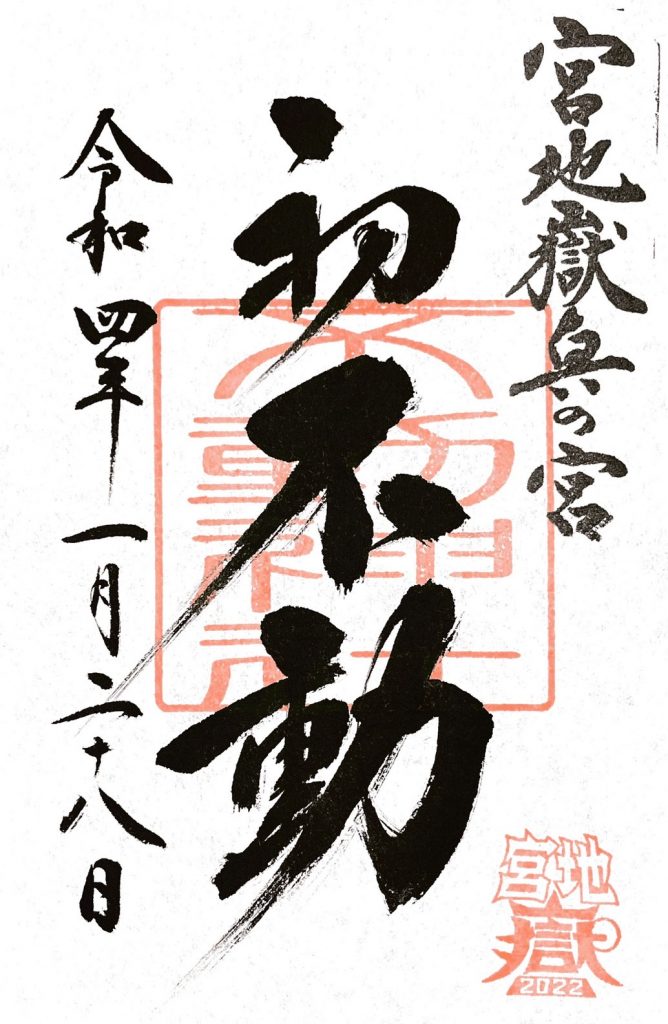 宮地嶽兵の宮
初不動
令和四年一月二十八日
不動神社
宮地
嶽
2022